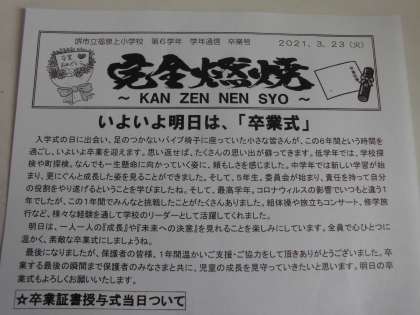 堺市立福泉上小学校　第６学年　学年通信　卒業号　2021. 3. 23 (火)
完全燃焼
～ KAN ZEN NEN SYO ～
いよいよ明日は、「卒業式」
入学式の日に出会い、足のつかないパイプ椅子に座っていた小さな皆さんが、この６年間という時間を
過ごし、いよいよ卒業を迎えます。思い返せば、たくさんの思い出が蘇ってきます。低学年では、学校探
検や町探検、なんでも一生懸命に向かっていく姿に、頼もしさを感じました。中学年では新しい学習が始
まり、更にぐんと成長した姿を見ることができました。そして、５年生。委員会が始まり、責任を持って自分の
役割をやり遂げるということを学びましたね。そして、最高学年。コロナウィルスの影響でいつもと違う１
年でしたが、この１年間でみんなと挑戦したことがたくさんありました。組体操や旅立ちコンサート、修学旅
行など、様々な経験を通して学校のリーダーとして活躍してくれました。
明日は、一人一人の『成長』や『未来への決意』を見れることを楽しみにしています。全員で心ひとつに
温かく、素敵な卒業式にしましょうね。
最後になりましたが、保護者の皆様、１年間温かいご支援・ご協力をして頂きありがとうございました。卒
業する最後の瞬間まで保護者のみなさまと共に、児童の成長を見守っていきたいと思います。明日の卒業
式もよろしくお願いいたします。
☆卒業証書授与式当日ついて